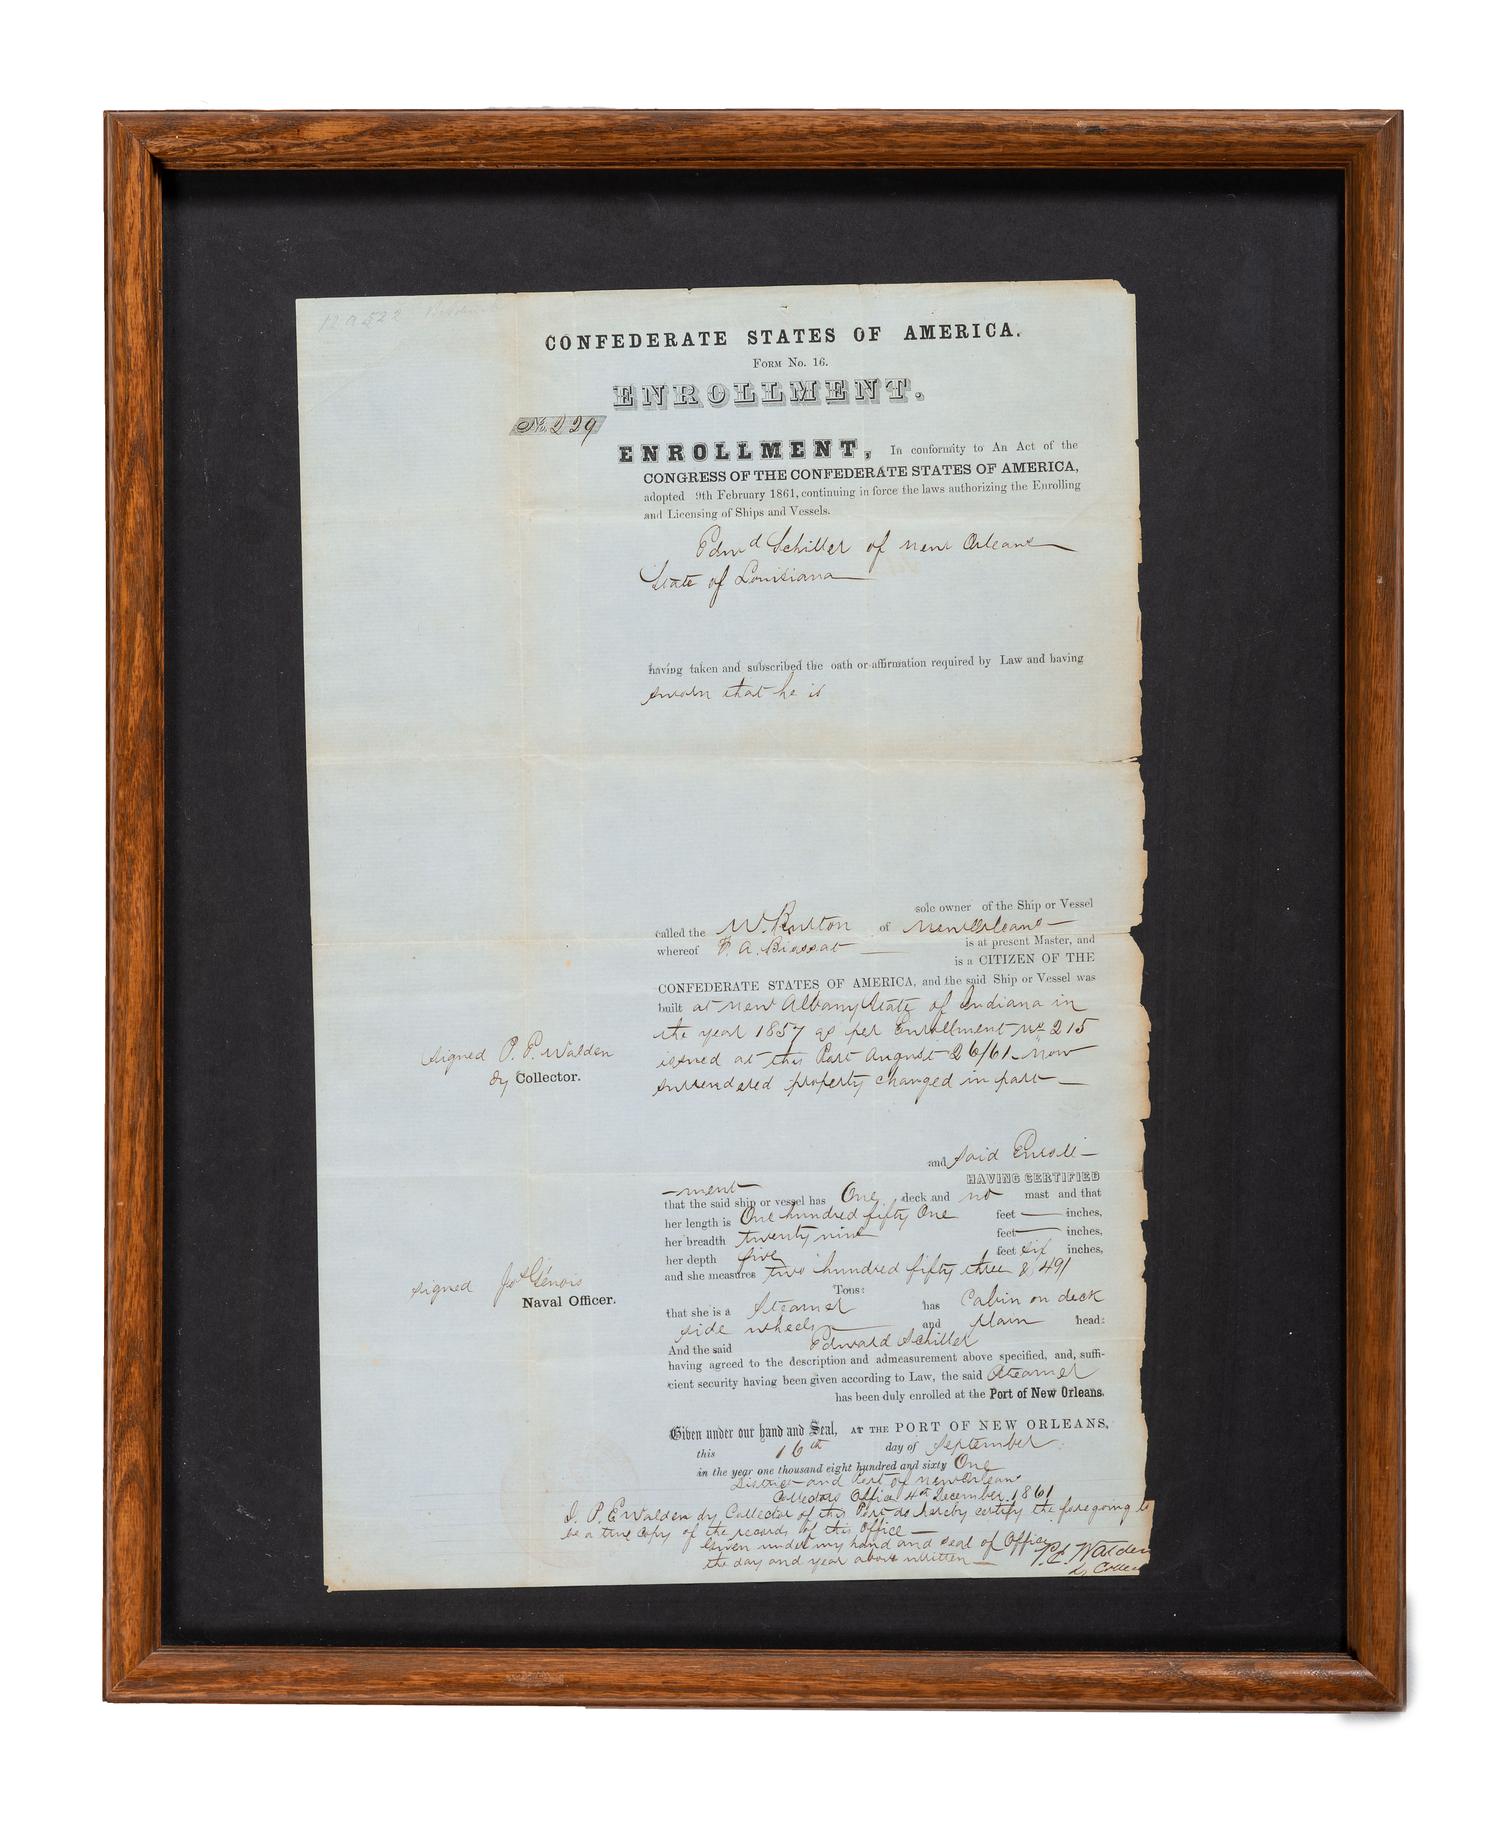 12a522
CONFEDERATE STATES OF AMERICA.
FORM No. 16.
ENROLLMENT.
No. 229
ENROLLMENT, In conformity to An Act of the
CONGRESS OF THE CONFEDERATE STATES OF AMERICA,
adopted 9th February 1861, continuing in force the laws authorizing the Enrolling
and Licensing of Ships and Vessels.
Edwd Schiller of New Orleans
State of Louisiana
having taken and subscribed the oath or affirmation required by Law and having
sworn that he is
sole owner of the Ship or Vessel
called the W. Burton of New Orleans
whereof P. A. Biossat is at present Master, and
is a CITIZEN OF THE
CONFEDERATE STATES OF AMERICA, and the said Ship or Vessel was
built at New Albany State of Indiana in
the year 1857 as per Enrollment No 215
issued at this Port August 26/61 now
surrendered property changed in part
signed P. E. Walden
Dy Collector.
and said Enroll-
-ment HAVING CERTIFIED
that the said ship or vessel has One deck and no mast and that
her length is One hundred fifty One feet inches,
her breadth twenty nine feet inches,
her depth five feet six inches,
and she measures two hundred fifty three & 49/
Tons:
that she is a Steamer has Cabin on deck
side wheels and Plain head:
And the said Edward Schiller
having agreed to the description and admeasurement above specified, and, suffi-
cient security having been given according to Law, the said Steamer
has been duly enrolled at the Port of New Orleans.
signed Jos Génois
Naval Officer.
Given under our hand and Seal, AT THE PORT OF NEW ORLEANS,
this 16th day of September
in the year one thousand eight hundred and sixty One
District and Port of New Orleans
Collectors Office 4th December 1861
I. P. E Walden dy Collector of this Port do hereby certify the foregoing to
be a true copy of the records of this Office
Given under my hand and seal of Office
the day and year above written
P. E. Walden
Dy Collec